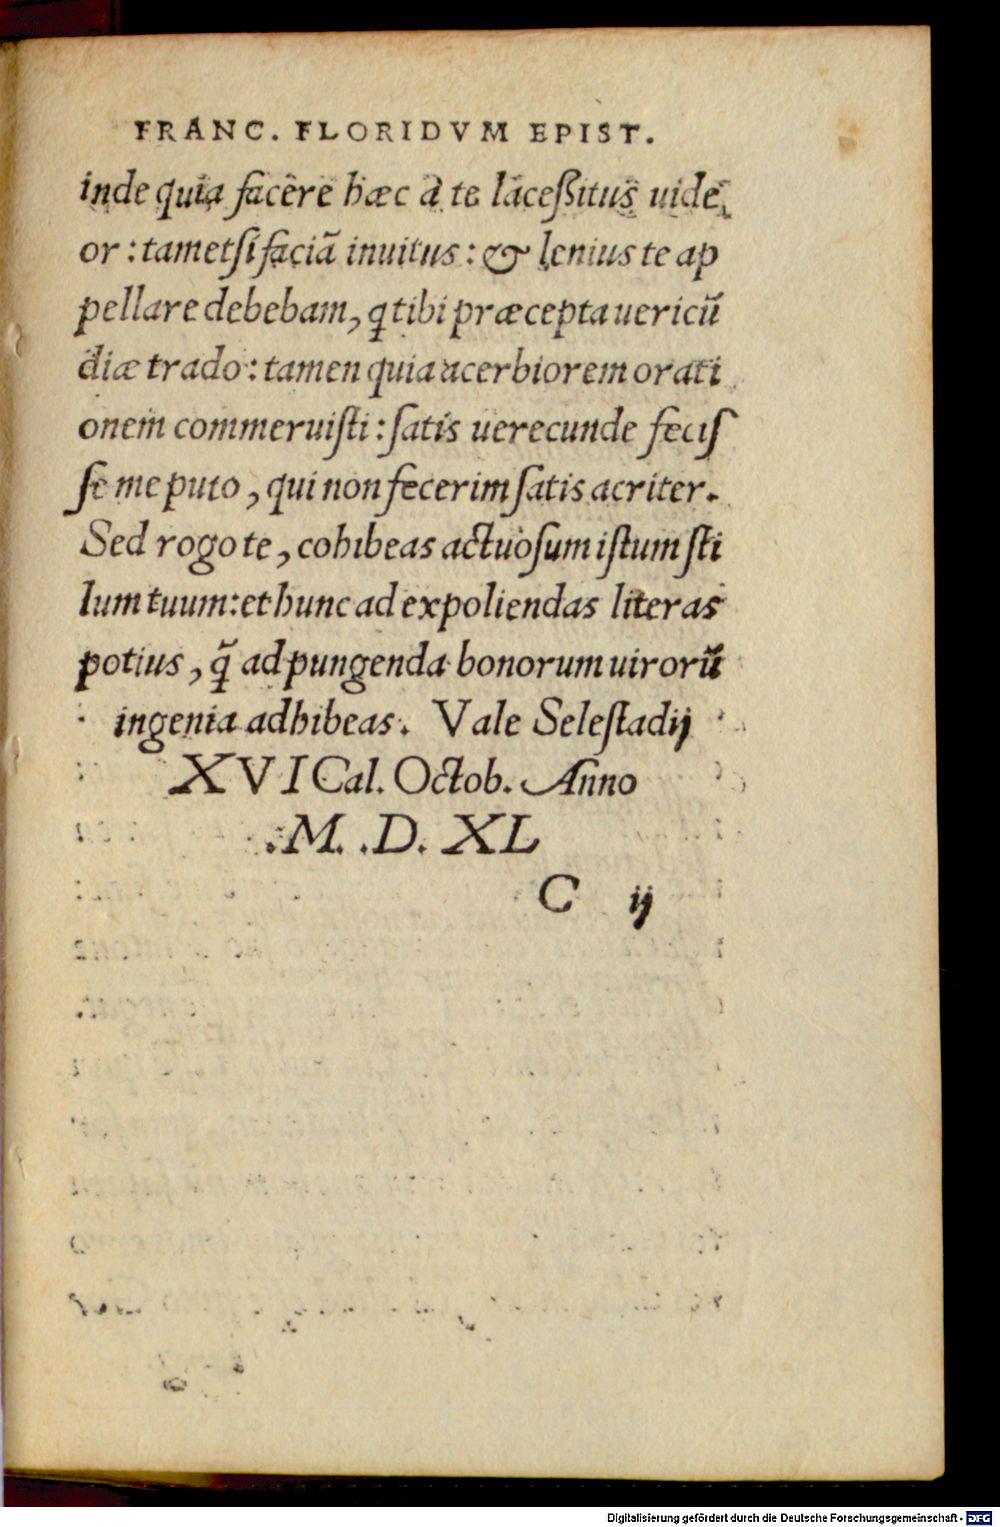 FRANC. FLORIDVM EPIST.
inde quia facere hæc à te laceßitus uide
or : tametsi faciã inuitus : & lenius te ap
pellare debebam, ꝗ tibi præcepta uericũ
diæ trado : tamen quia acerbiorem orati
onem commeruisti : satis uerecunde fecis
se me puto, qui non fecerim satis acriter.
Sed rogo te, cohibeas actuosum istum sti
lum tuum: et hunc ad expoliendas literas
potius, q̃ ad pungenda bonorum uirorũ
ingenia adhibeas. Vale Selestadij
XVI Cal. Octob. Anno
.M. .D. XL
C ij
Digitalisierung gefördert durch die Deutsche Forschungsgemeinschaft - DFG